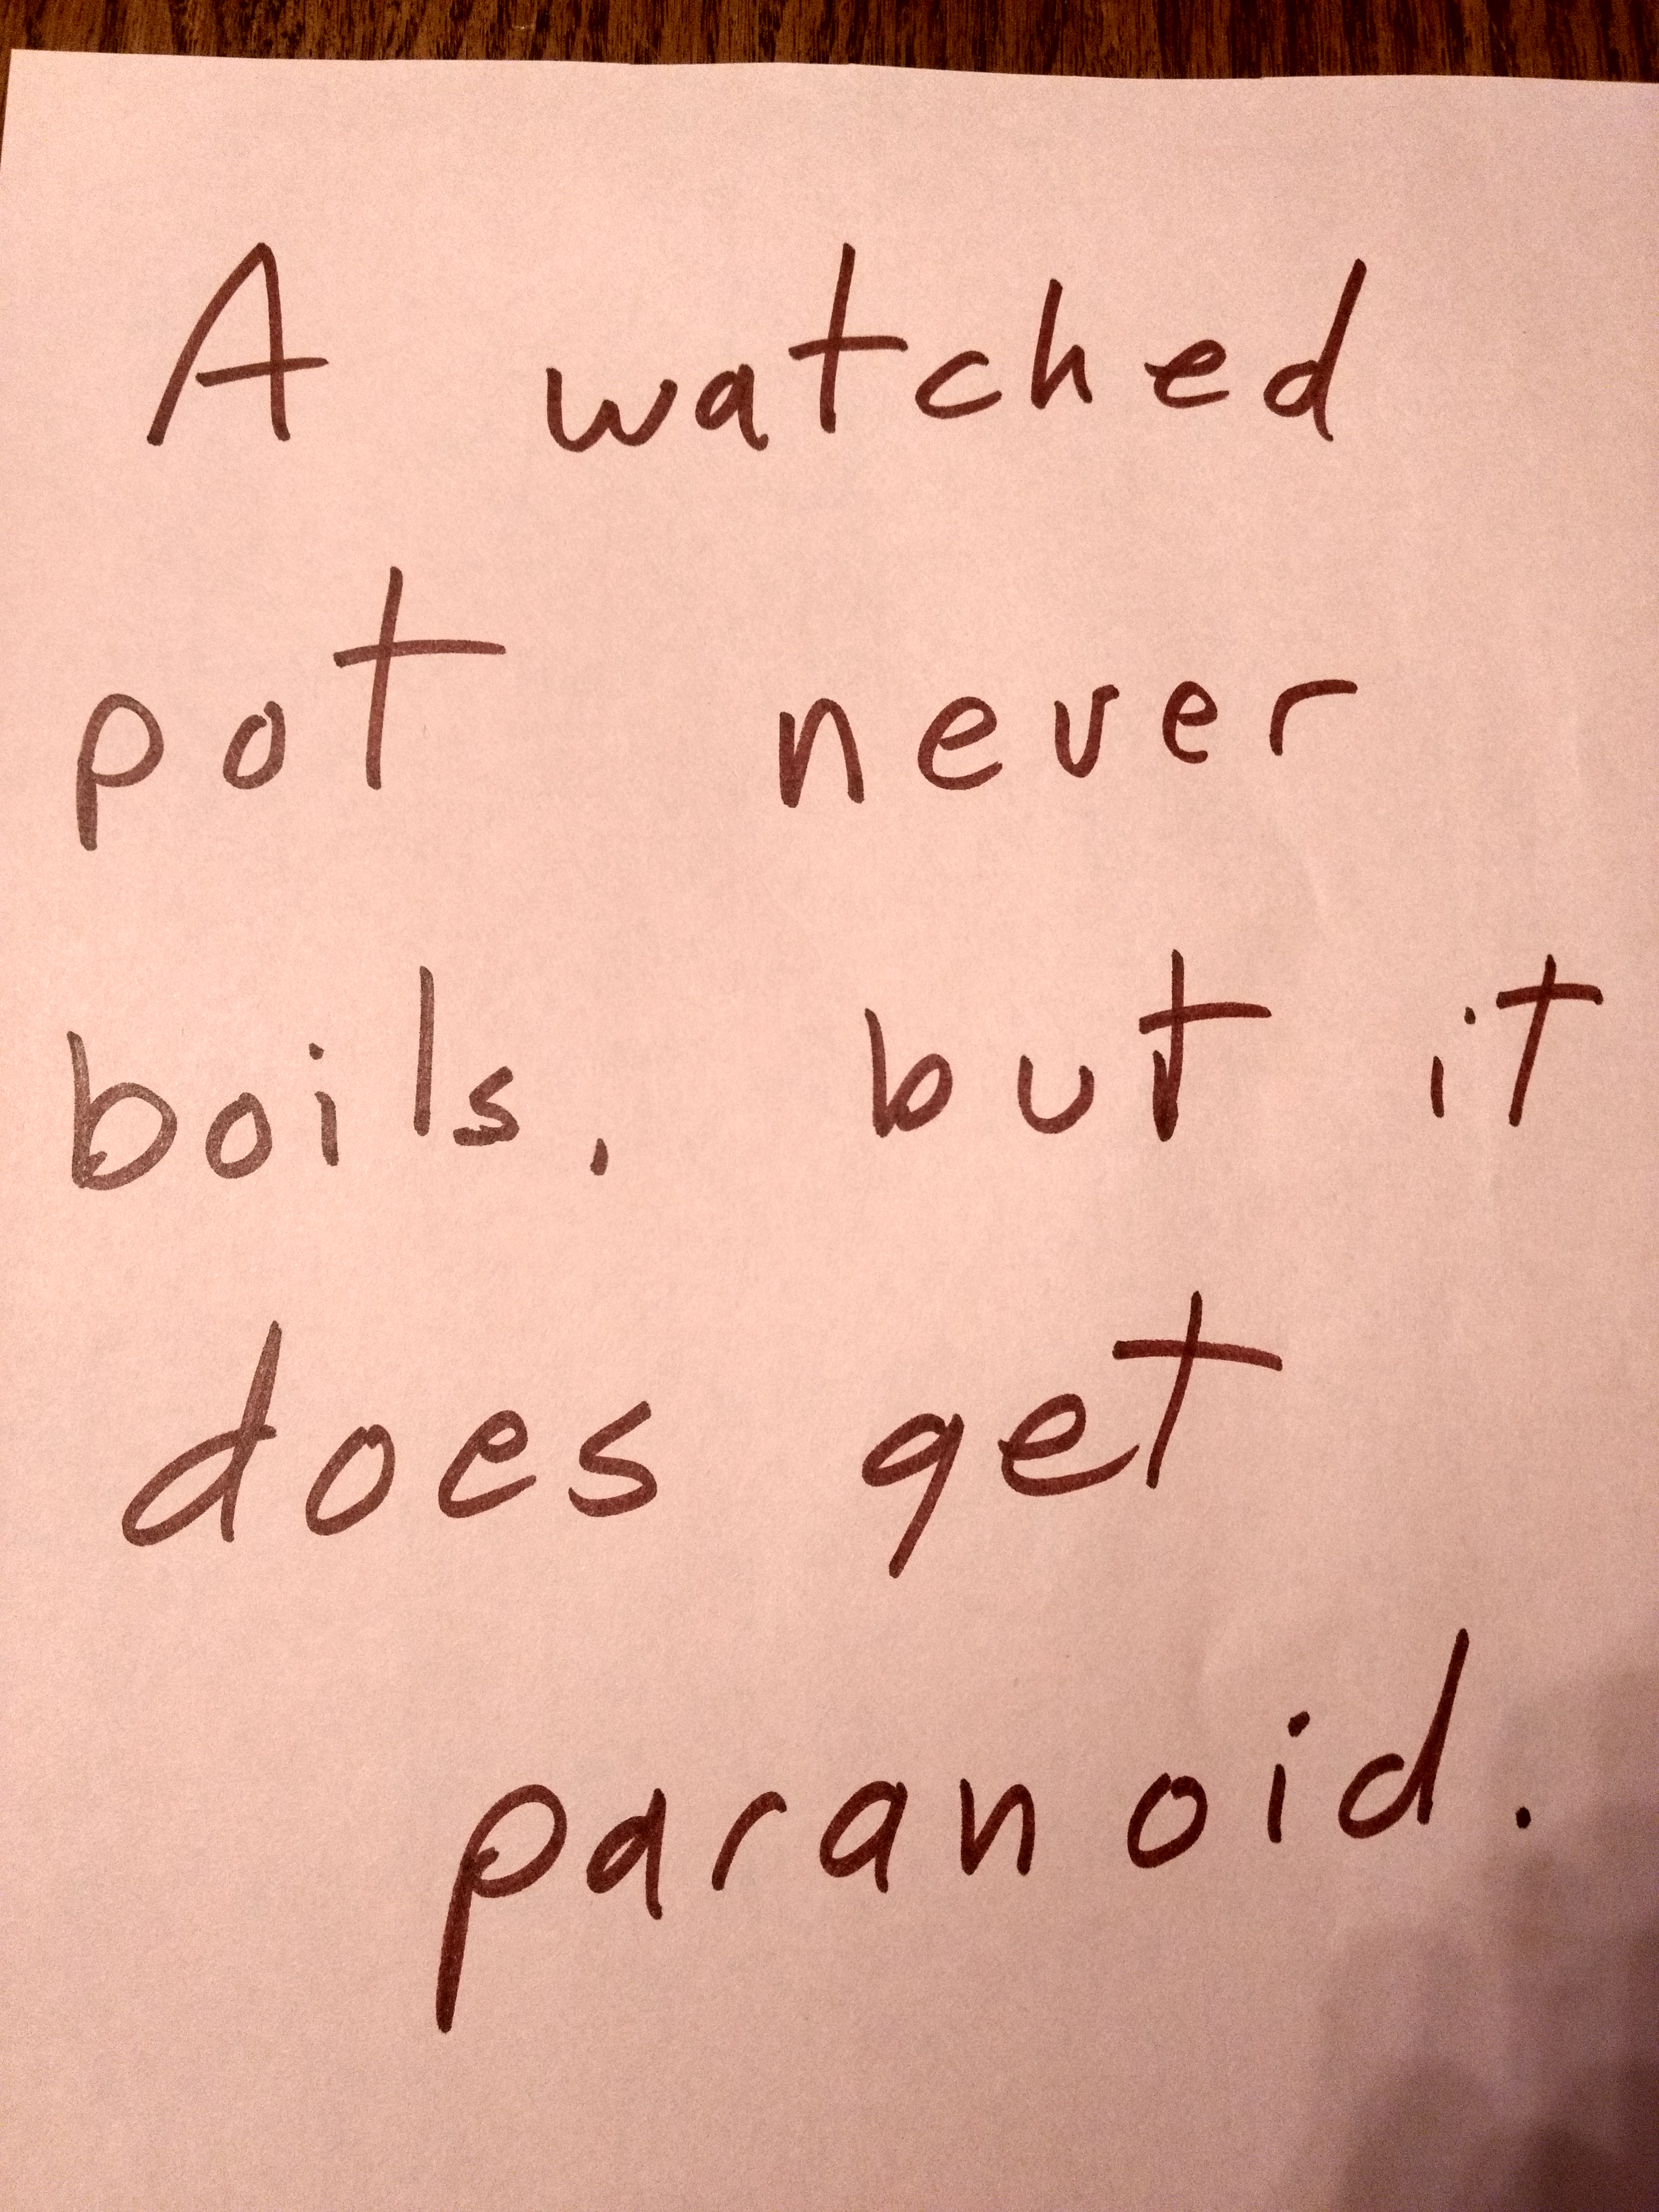 A watched
pot never
boils, but it
does get
paranoid.